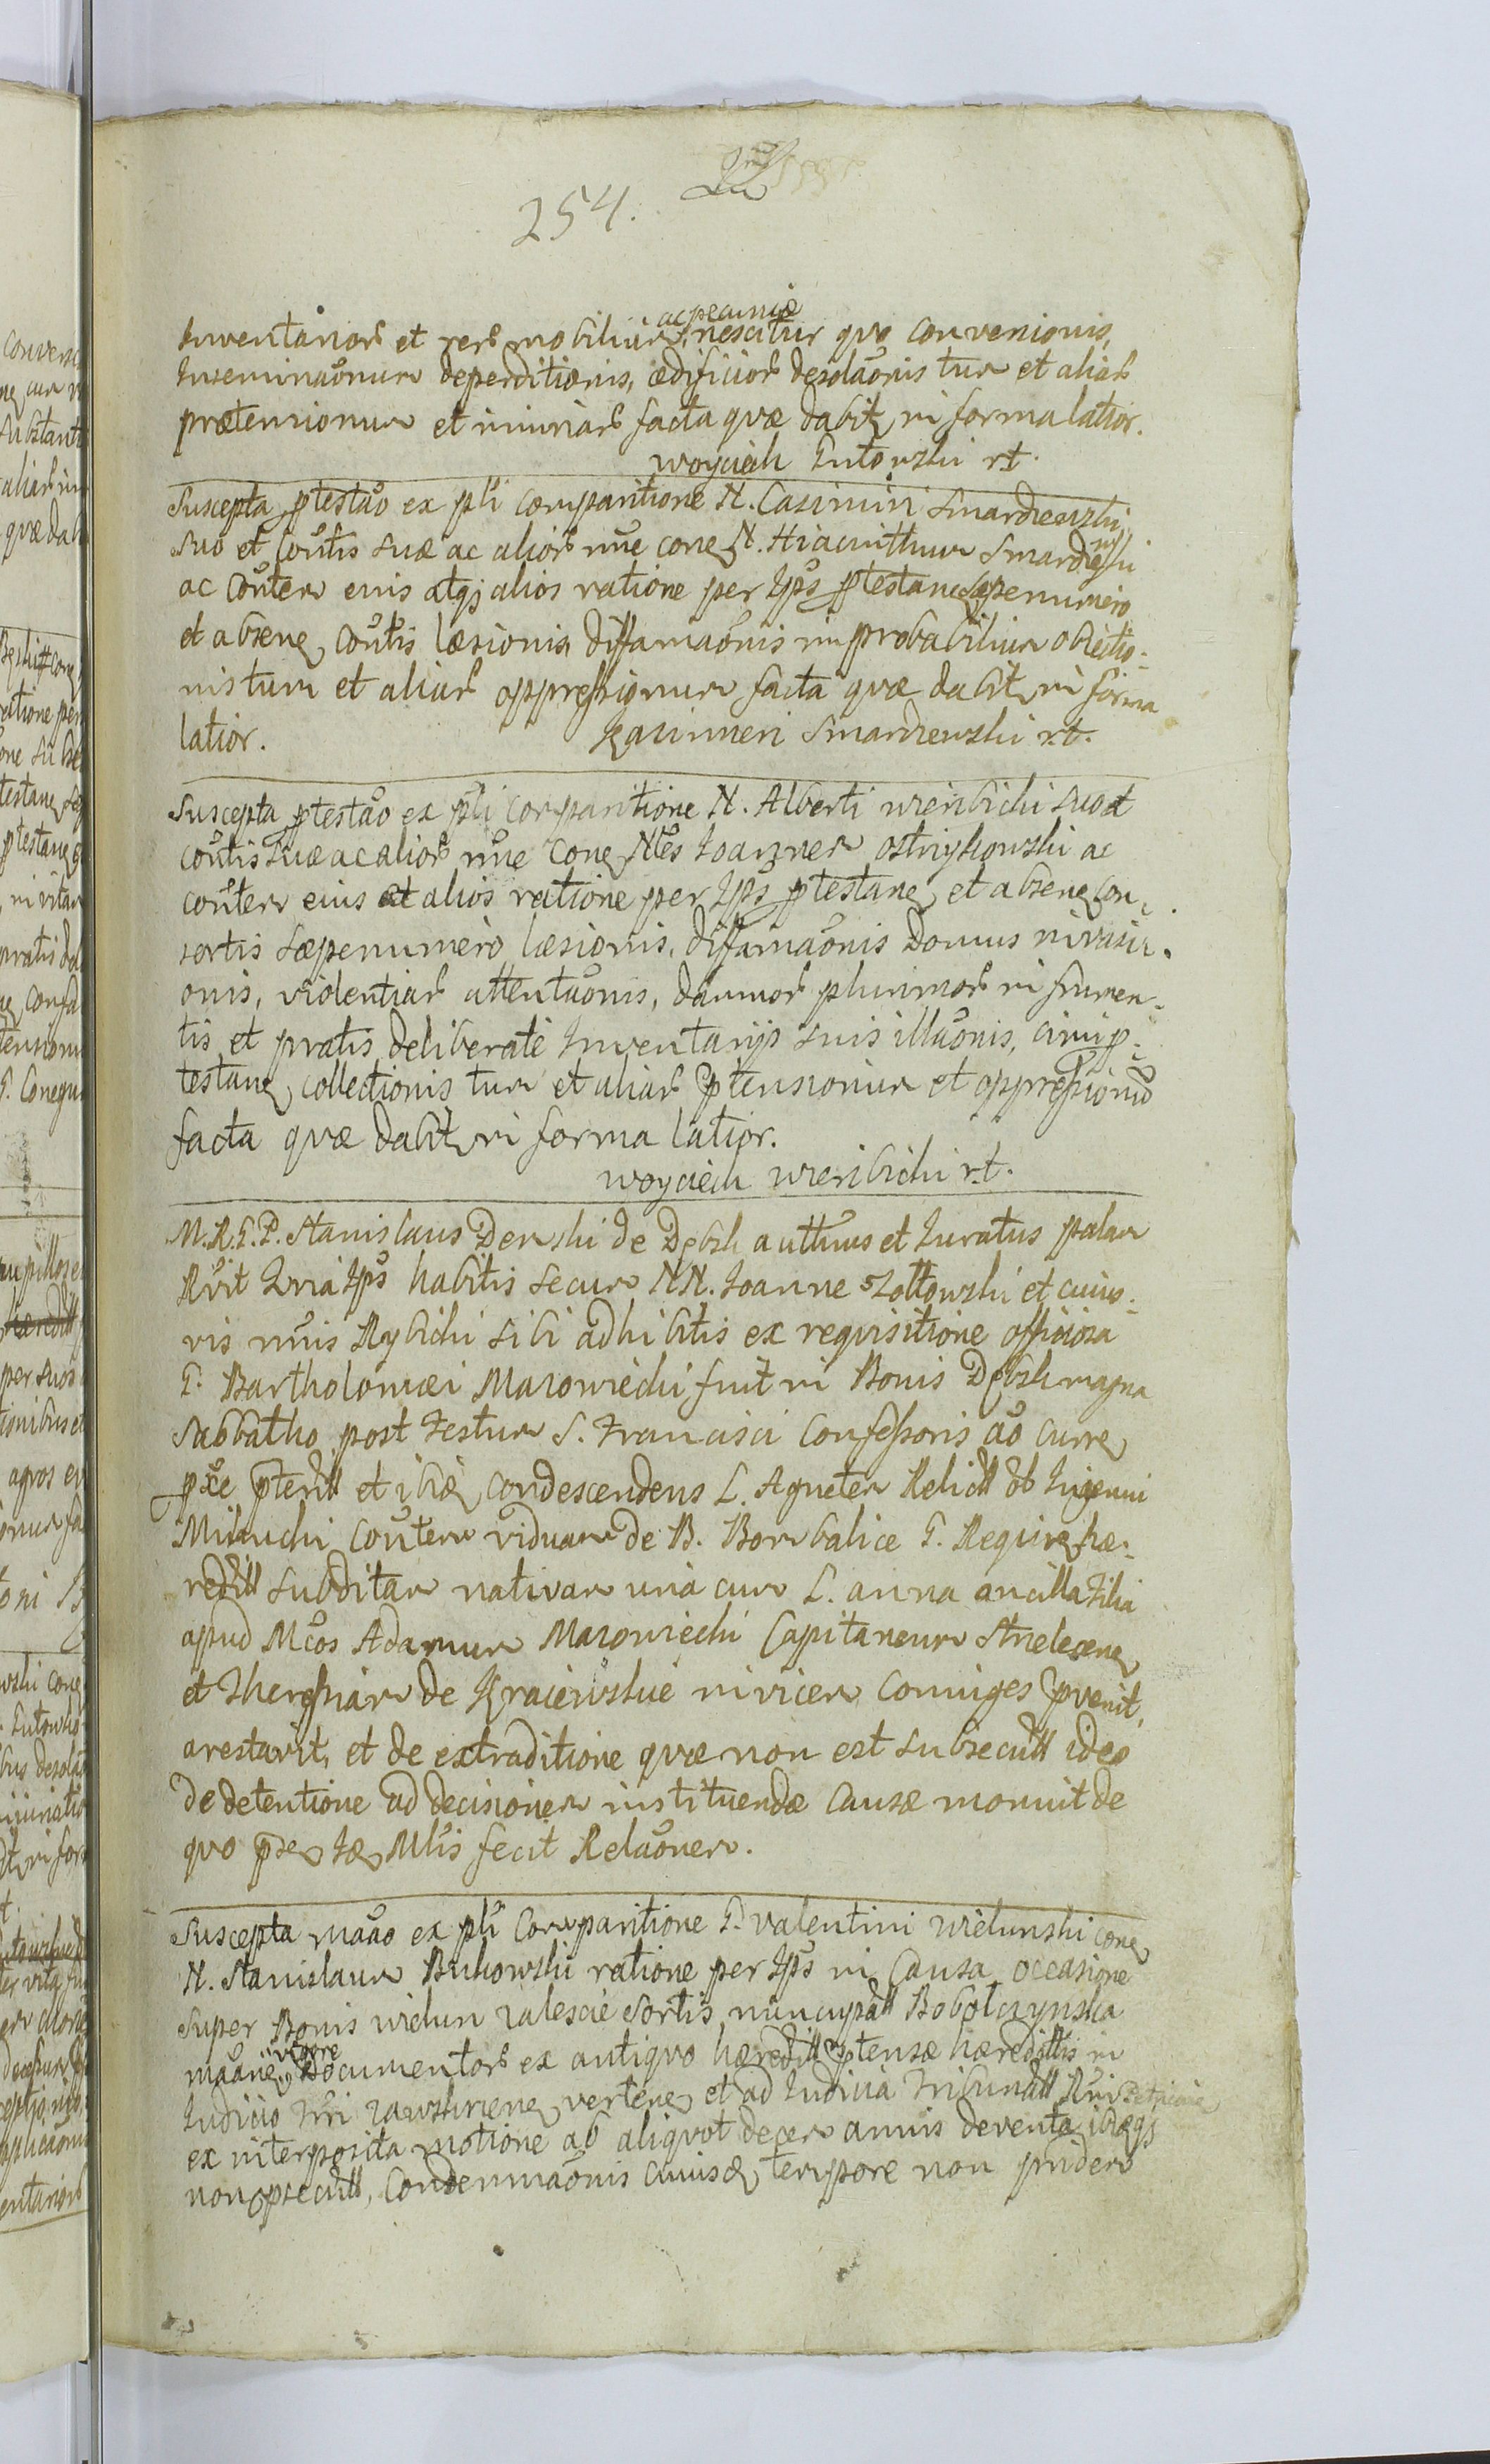 254.
ac pecuniæ
Inventarior et rer mobilium, nescitur quo conversionis,
Inseminaonum deperditionis, ædificior desolaonis tum et aliar
prætensionum et iniuriar facta quæ dabit in forma latior.
Woyciech Gutowski rt.
Suscepta ptestao ex pli comparitione N. Casimiri Smardzewski
suo et Coutis suæ ac alior nne cone N. Hiacinthum Smardzewski
ac Coutem eius atqj alios ratione per Ips ptestane sæpenumero
et absene Coutis læsionis, diffamaonis improbabilium obiectio-
nis tum et aliar oppressionum facta quæ dabit in forma
latior. Kazimierz Smardzewski r.t.
Suscepta ptestao ex pli comparitione N. Alberti Wierzbicki suo et
coutis suæ ac alior nne cone Nles Joannem Ostrzykowski ac
coutem eius et alios ratione per Ips ptestane et absene con-
sortis sæpenumero læsionis, diffamaonis Domus invasi-
onis, violentiar attentaonis, damnor plurimor in frumen-
tis et pratis deliberate Inventarijs suis illaonis, cimi p-
testane collectionis tum et aliar ptensionum et oppressionum
facta quæ dabit in forma latior.
Woyciech Wierzbicki r.t.
M.R.G.P. Stanislaus Dembski de Dębsk authus et Juratus palam
Rvit Quia Ips habitis secum NN. Joanne Zołtowski et cuius-
vis nnis Rybicki sibi adhibitis ex requisitione officiosa
G. Bartholomæi Mazowiecki fuit in Bonis Dębsk magna
Sabbatho post Festum S. Francisci Confessoris ao curre
pxe pterit et ibiq condescendens L. Agnetem Relict ol Ingenui
Milnicki Coutem viduam de B. Bombalice G. Require hæ-
redit subditam nativam una cum L. anna ancilla Filia
apud Mcos Adamum Mazowiecki Capitaneum Strelecene
et Theressiam de Kraiewskie invicem Coniuges pvenit,
arestavit, et de extraditione quæ non est subsecutt ideo
de detentione ad decisionem instituendæ Causæ monuit de
quo pse Hæ Mlis fecit Relaonem.
Suscepta maão ex pli Comparitione G. Valentini Wielunski cone
N. Stanislaum Bukowski ratione per Ips in Causa occasione
super Bonis Wielun Zalesie Sortis nuncupatt Bobolczynska
vigore
maane Documentor ex antiquo hæreditt ptensæ hæredittis in
Judicio Trri Zawskrzene vertene et ad Judicia Tribunalt Rni
ex interposita motione ab aliquot decem annis deventa ibæqj
non psecutt, Condemnaonis cuiusq tempore non pridem